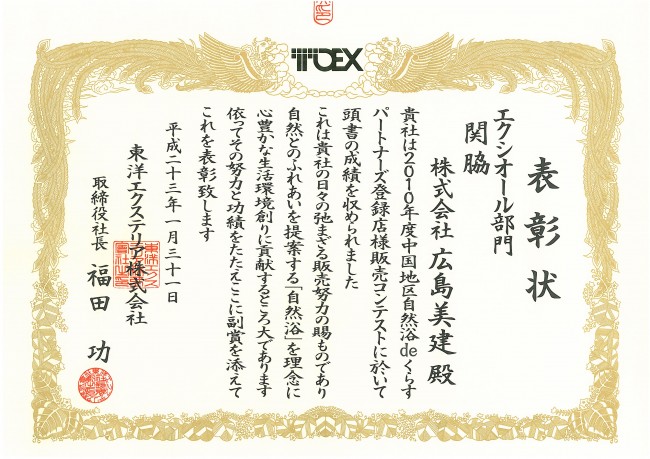 TOEX
表彰状
エクシオール部門
関脇
株式会社 広島美建 殿
貴社は2010年度中国地区自然浴deくらす
パートナーズ登録店様販売コンテストに於いて
頭書の成績を収められました
これは貴社の日々の弛まざる販売努力の賜ものであり
自然とのふれあいを提案する「自然浴」を理念に
心豊かな生活環境創りに貢献するところ大であります
依ってその努力と功績をたたえここに副賞を添えて
これを表彰致します
平成二十三年一月三十一日
東洋エクステリア株式会社
取締役社長 福田 功